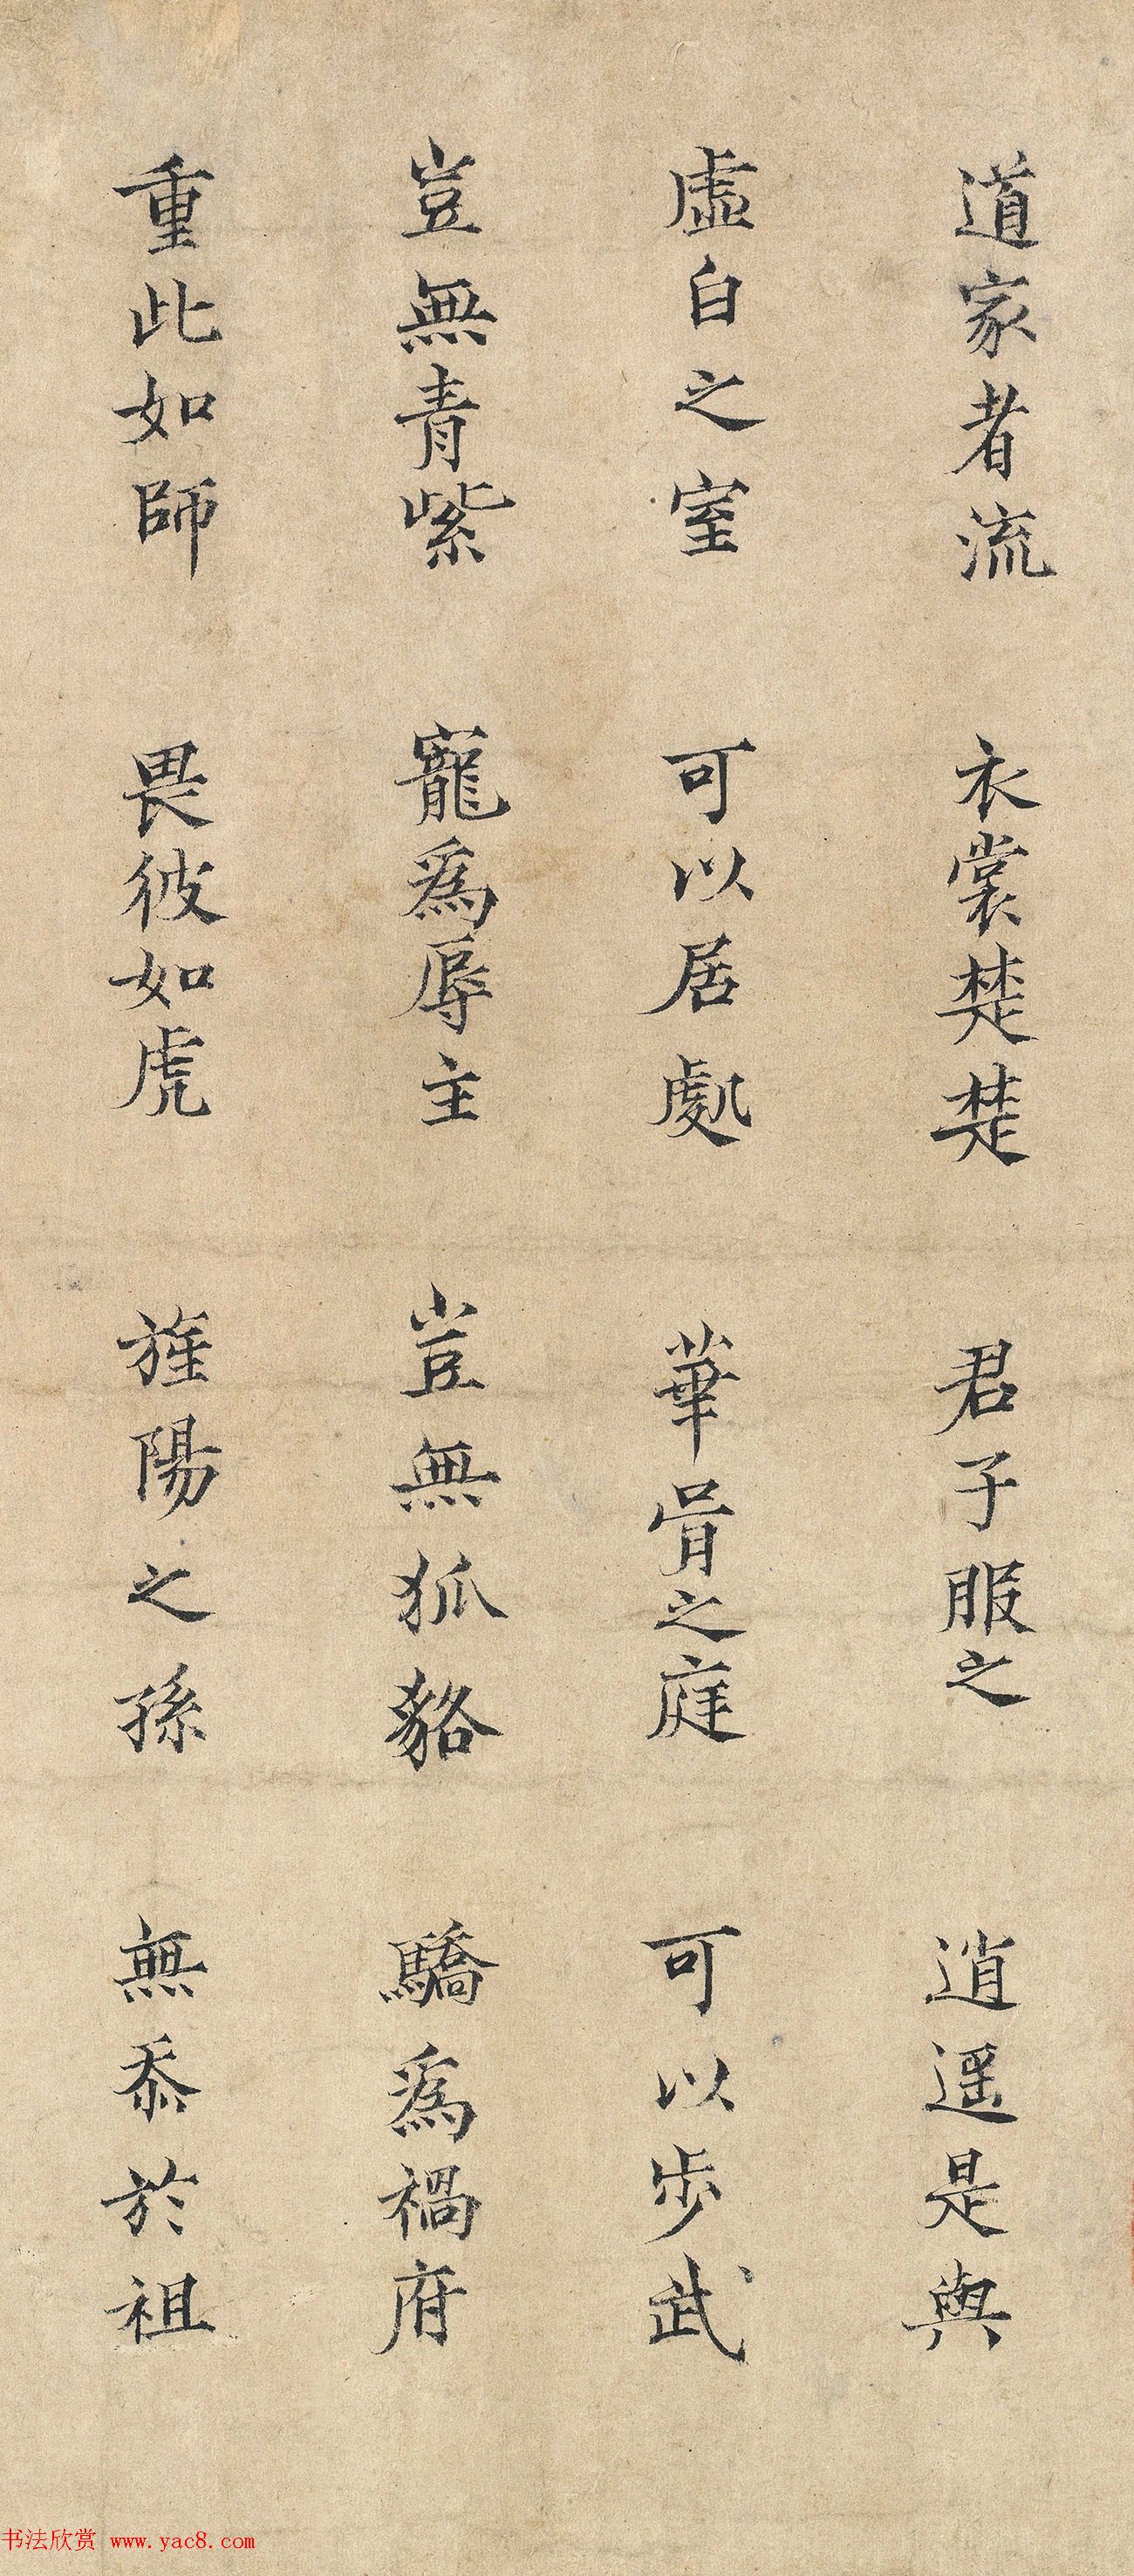 道家者流 衣裳楚楚 君子服之 逍遥是與
虛白之室 可以居處 華胥之庭 可以步武
豈無青紫 寵爲辱主 豈無狐貉 驕爲禍府
重此如師 畏彼如虎 旌陽之孫 無忝於祖
书法欣赏 www.yac8.com